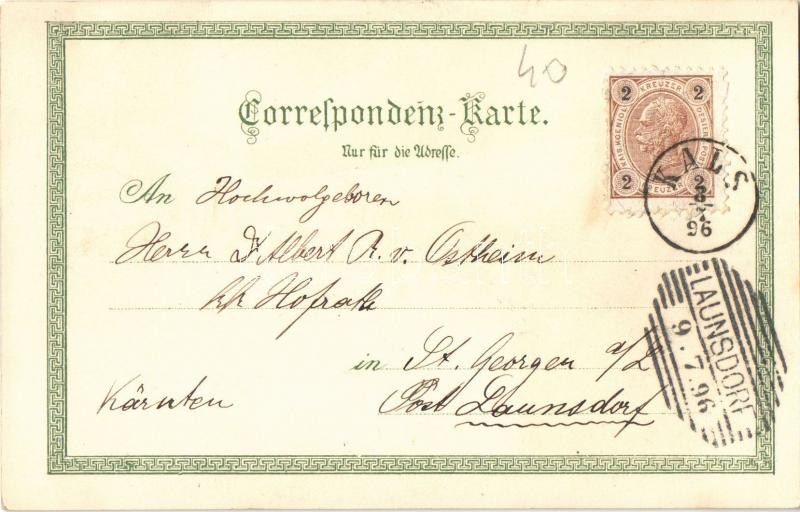 40
Correspondenz-Karte.
Nur für die Adresse.
2 KREUZER 2
2 KREUZER 2
KALS
96
An Hochwolgeboren
Herrn Dr Albert R. v. Ostheim
kk Hofrath
in St. Georgen a/L
Kärnten Post Launsdorf
LAUNSDORF
9.7.96